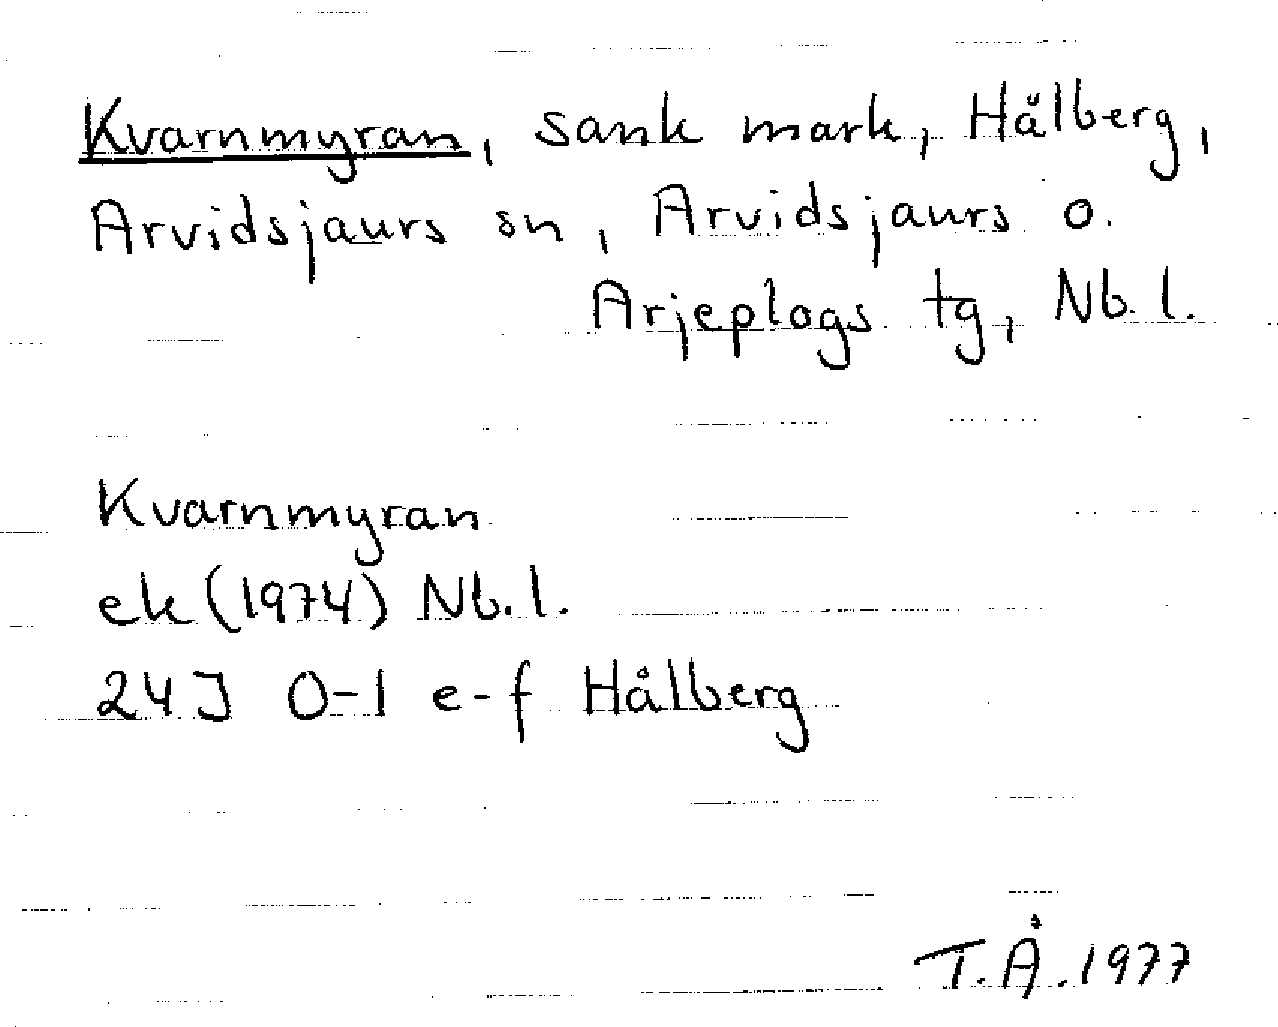 Kvarnmyran, sank mark, Hålberg,
Arvidsjaurs sn, Arvidsjaurs o.
Arjeplogs tg, Nb. l.
Kvarnmyran
ek (1974) Nb. l.
24J 0-1 e-f Hålberg
T.Å. 1977